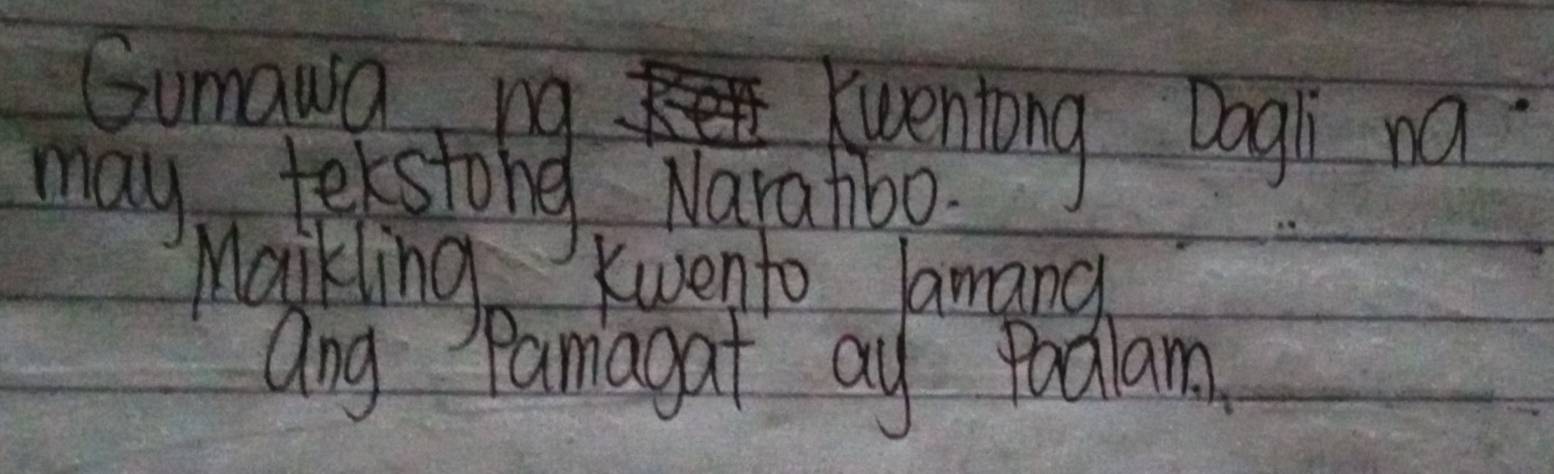 Gumawa ng Kwentong Dagli na
may tekstong Naratibo.
Maikling Kwento lamang
Ang Pamagat ay Paalam.